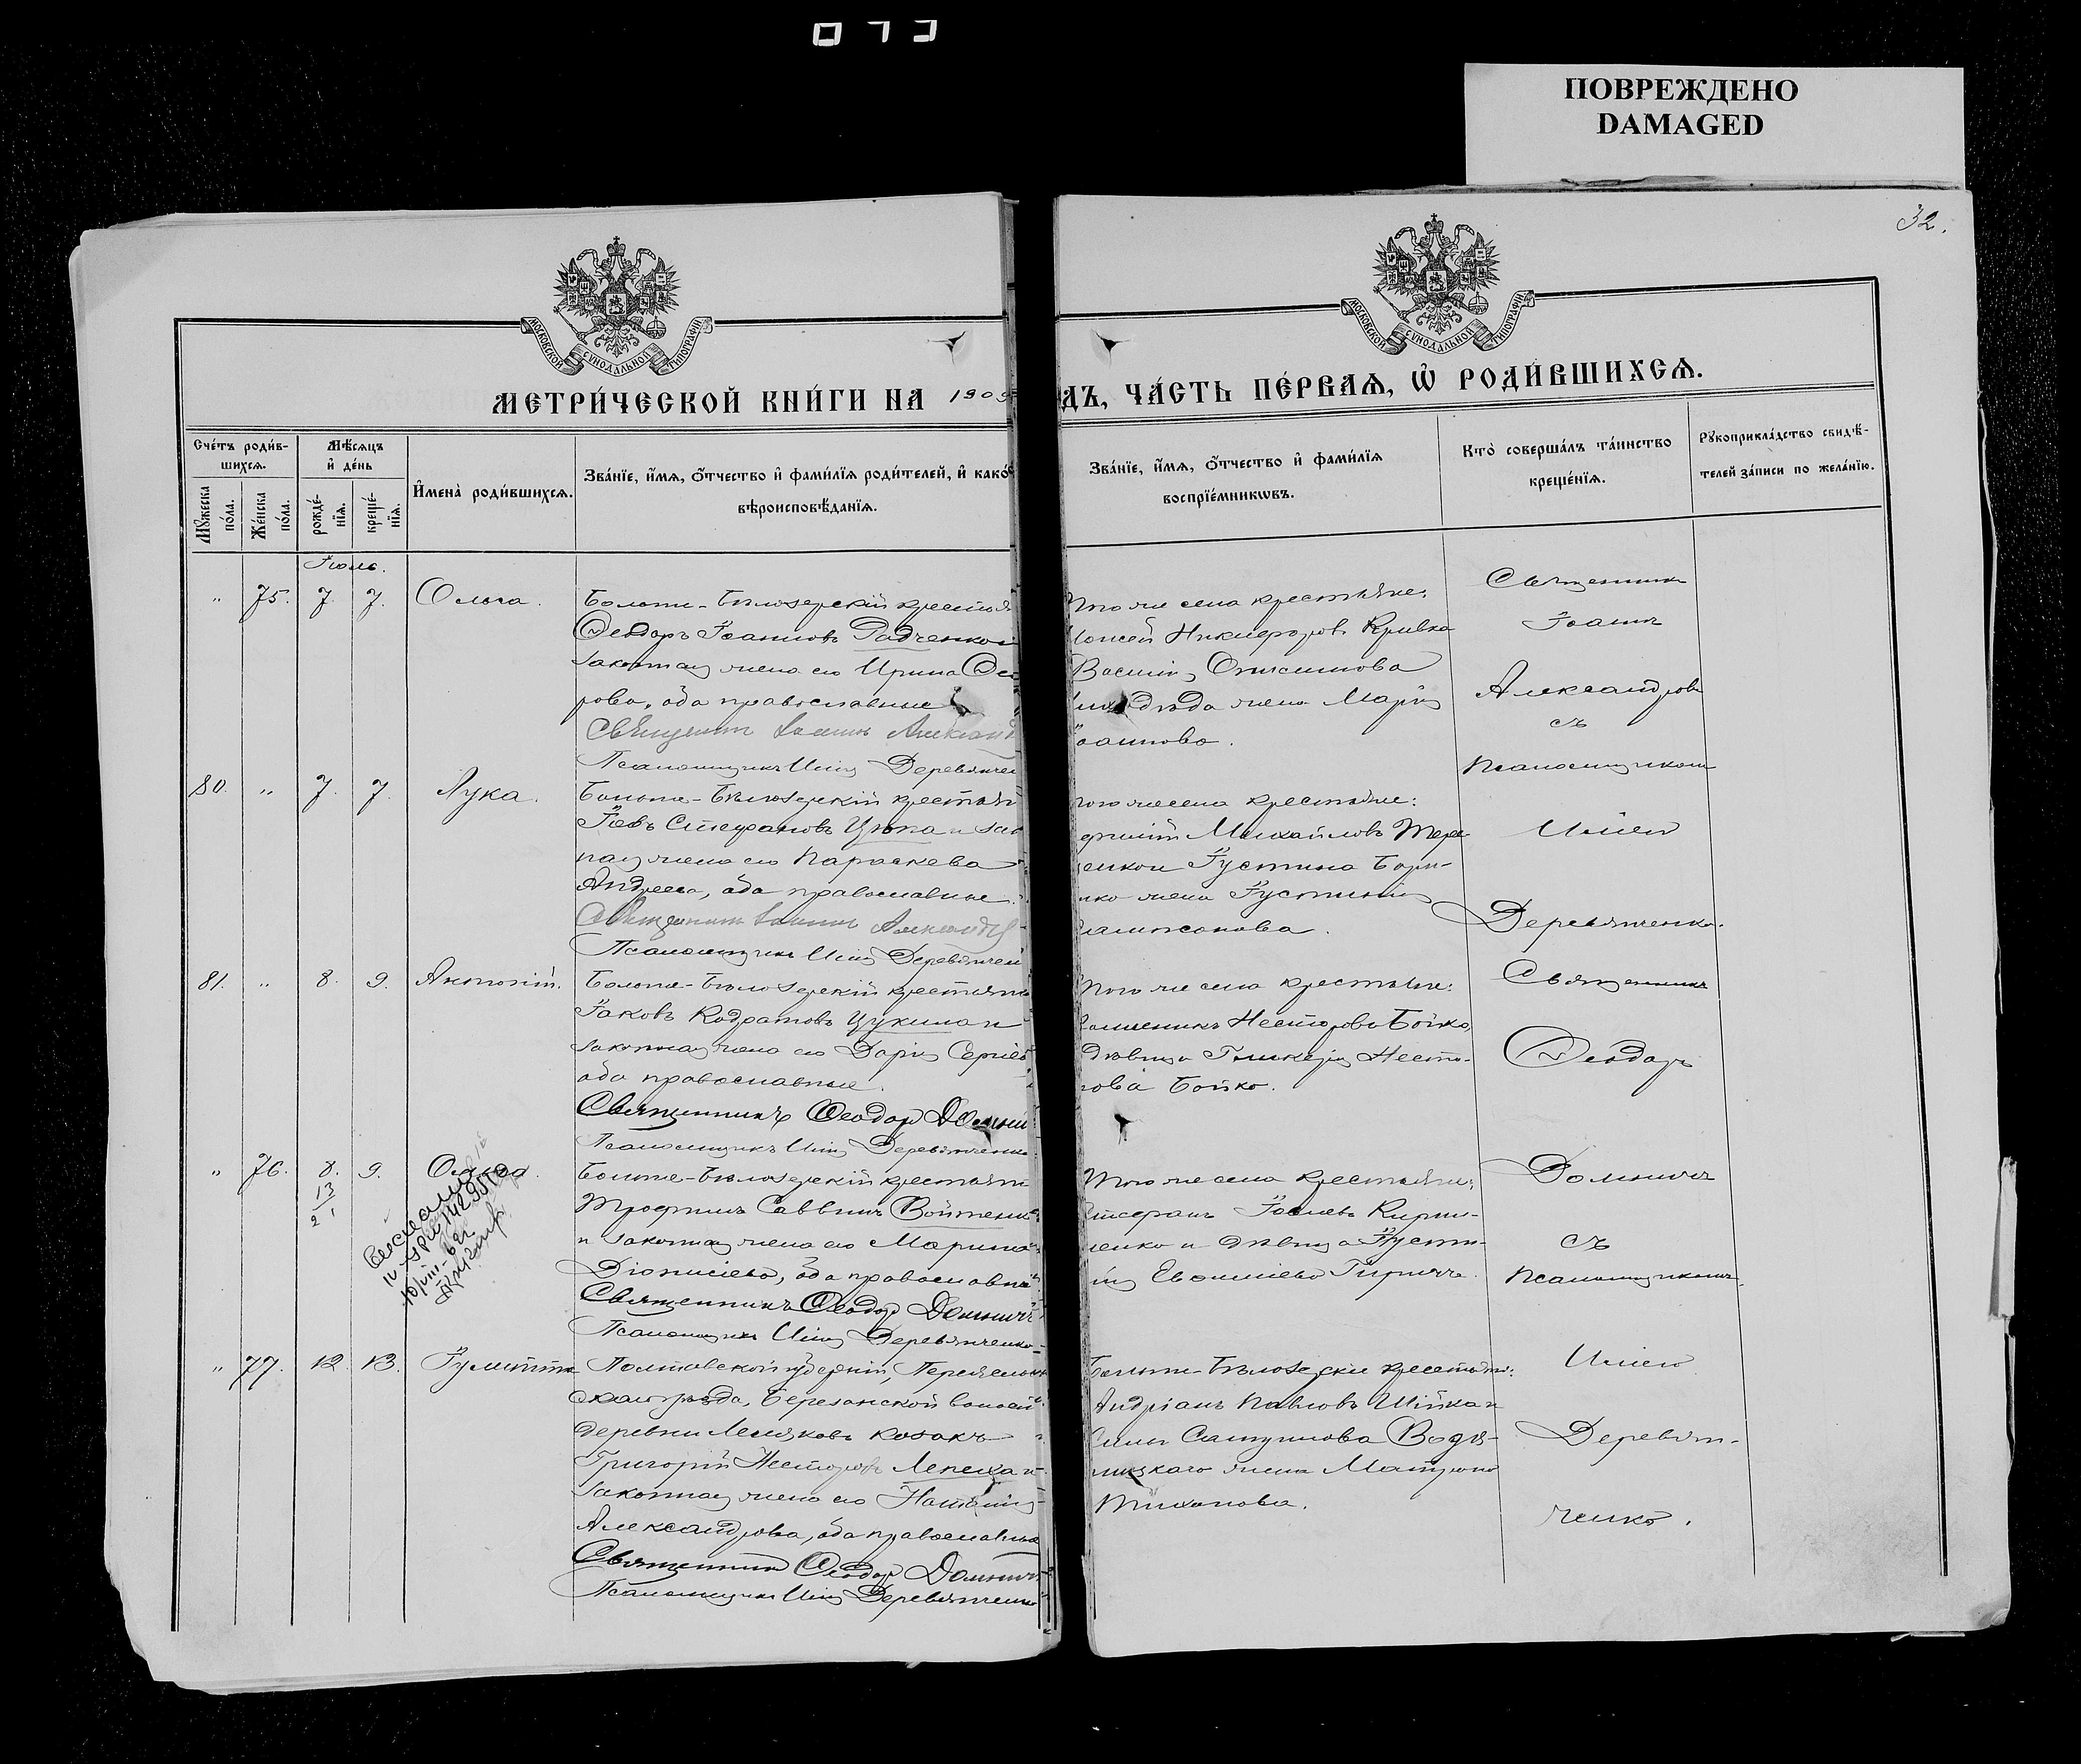 ПОВРЕЖДЕНО
DAMAGED
32.
МОСКОВСКОЙ СѴНОДАЛЬНОЙ ТИПОГРАФІИ
МОСКОВСКОЙ СѴНОДАЛЬНОЙ ТИПОГРАФІИ
МЕТРИ́ЧЕСКОЙ КНИ́ГИ НА 1909
ДЪ, ЧА́СТЬ ПЕ́РВАѦ, Ѡ҆ РОДИ́ВШИХСѦ.
Сче́тъ роди́в-
шихсѧ.
Мꙋ́жеска по́ла.
Же́нска по́ла.
Мѣ́сѧцъ
и҆ де́нь
рожде́-
нїѧ.
креще́-
нїѧ.
И҆мена̀ роди́вшихсѧ.
Зва́нїе, и҆́мѧ, ѻ҆́тчество и҆ фами́лїѧ роди́телей, и҆ како́г
вѣроисповѣ́данїѧ.
Зва́нїе, и҆́мѧ, ѻ҆́тчество и҆ фами́лїѧ
воспрїе́мникѡвъ.
Кто̀ соверша́лъ та́инство
креще́нїѧ.
Рꙋкоприкла́дство свидѣ́-
телей за́писи по жела́нїю.
Іюль.
" 75. 7. 7. Ольга.
Больше-Бѣлозерскій крестья
Ѳеодоръ Іоанновъ Радченко и
законная жена его Ирина Ѳео
рова, оба православные
Священникъ Іоаннъ Александ
Псаломщикъ Илія Деревянчен
того же села крестьяне:
Моисей Никифоровъ Кривко
Василія Онисимова
дѣда жена Марія
Іоаннова.
Священникъ
Іоаннъ
Александровъ
съ
Псаломщикомъ
80. " 7. 7. Лука.
Больше-Бѣлозерскій крестьян
Іовъ Стефановъ Цюпа и зак
ная жена его Параскева
Андреева, оба православные.
Священникъ Іоаннъ Александр
Псаломщикъ Илія Деревянчен
того же села крестьяне:
Михайловъ Тере
щенко и Іустина Бори-
нко жена Іустинія
Илією
Деревянченко.
81. " 8. 9. Антоній.
Больше-Бѣлозерскій крестьяни
Іаковъ Кодратовъ Цукила и
законная жена его Дарія Сергіев
оба православные.
Священникъ Ѳеодоръ Домнич
Псаломщикъ Илія Деревянченко
Того же села крестьяне:
Несторовъ Бойко
Дѣвица Гликерія Несто-
рова Бойко.
Священникъ
Ѳеодоръ
" 76. 8. 9. Ольга.
13
21
Больше-Бѣлозерскій крестьяни
Трофимъ Саввинъ Войтенко
и законная жена его Марина
Діонисіева, оба православные
Священникъ Ѳеодоръ Домничъ
Псаломщикъ Илія Деревянченко
Того же села крестьяне:
Стефанъ Іовлевъ Кири-
ленко и дѣвица Іусти-
нія Евфиміева Гиричъ.
Домничъ
съ
Псаломщикомъ.
" 77. 12. 13. Іулитта
Полтавской губерніи, Переяслав
скаго уѣзда, Березанской волости
деревни Лемяковъ козакъ
Григорій Несторовъ Лепеха и
законная жена его Наталія
Александрова, оба православные
Священникъ Ѳеодоръ Домничъ
Псаломщикъ Илія Деревянченко
Больше-Бѣлозерскіе крестьяне:
Андріанъ Павловъ Шійка и
Водя-
ницкаго жена Матрона
Тиханова.
Илією
Деревян-
ченко.